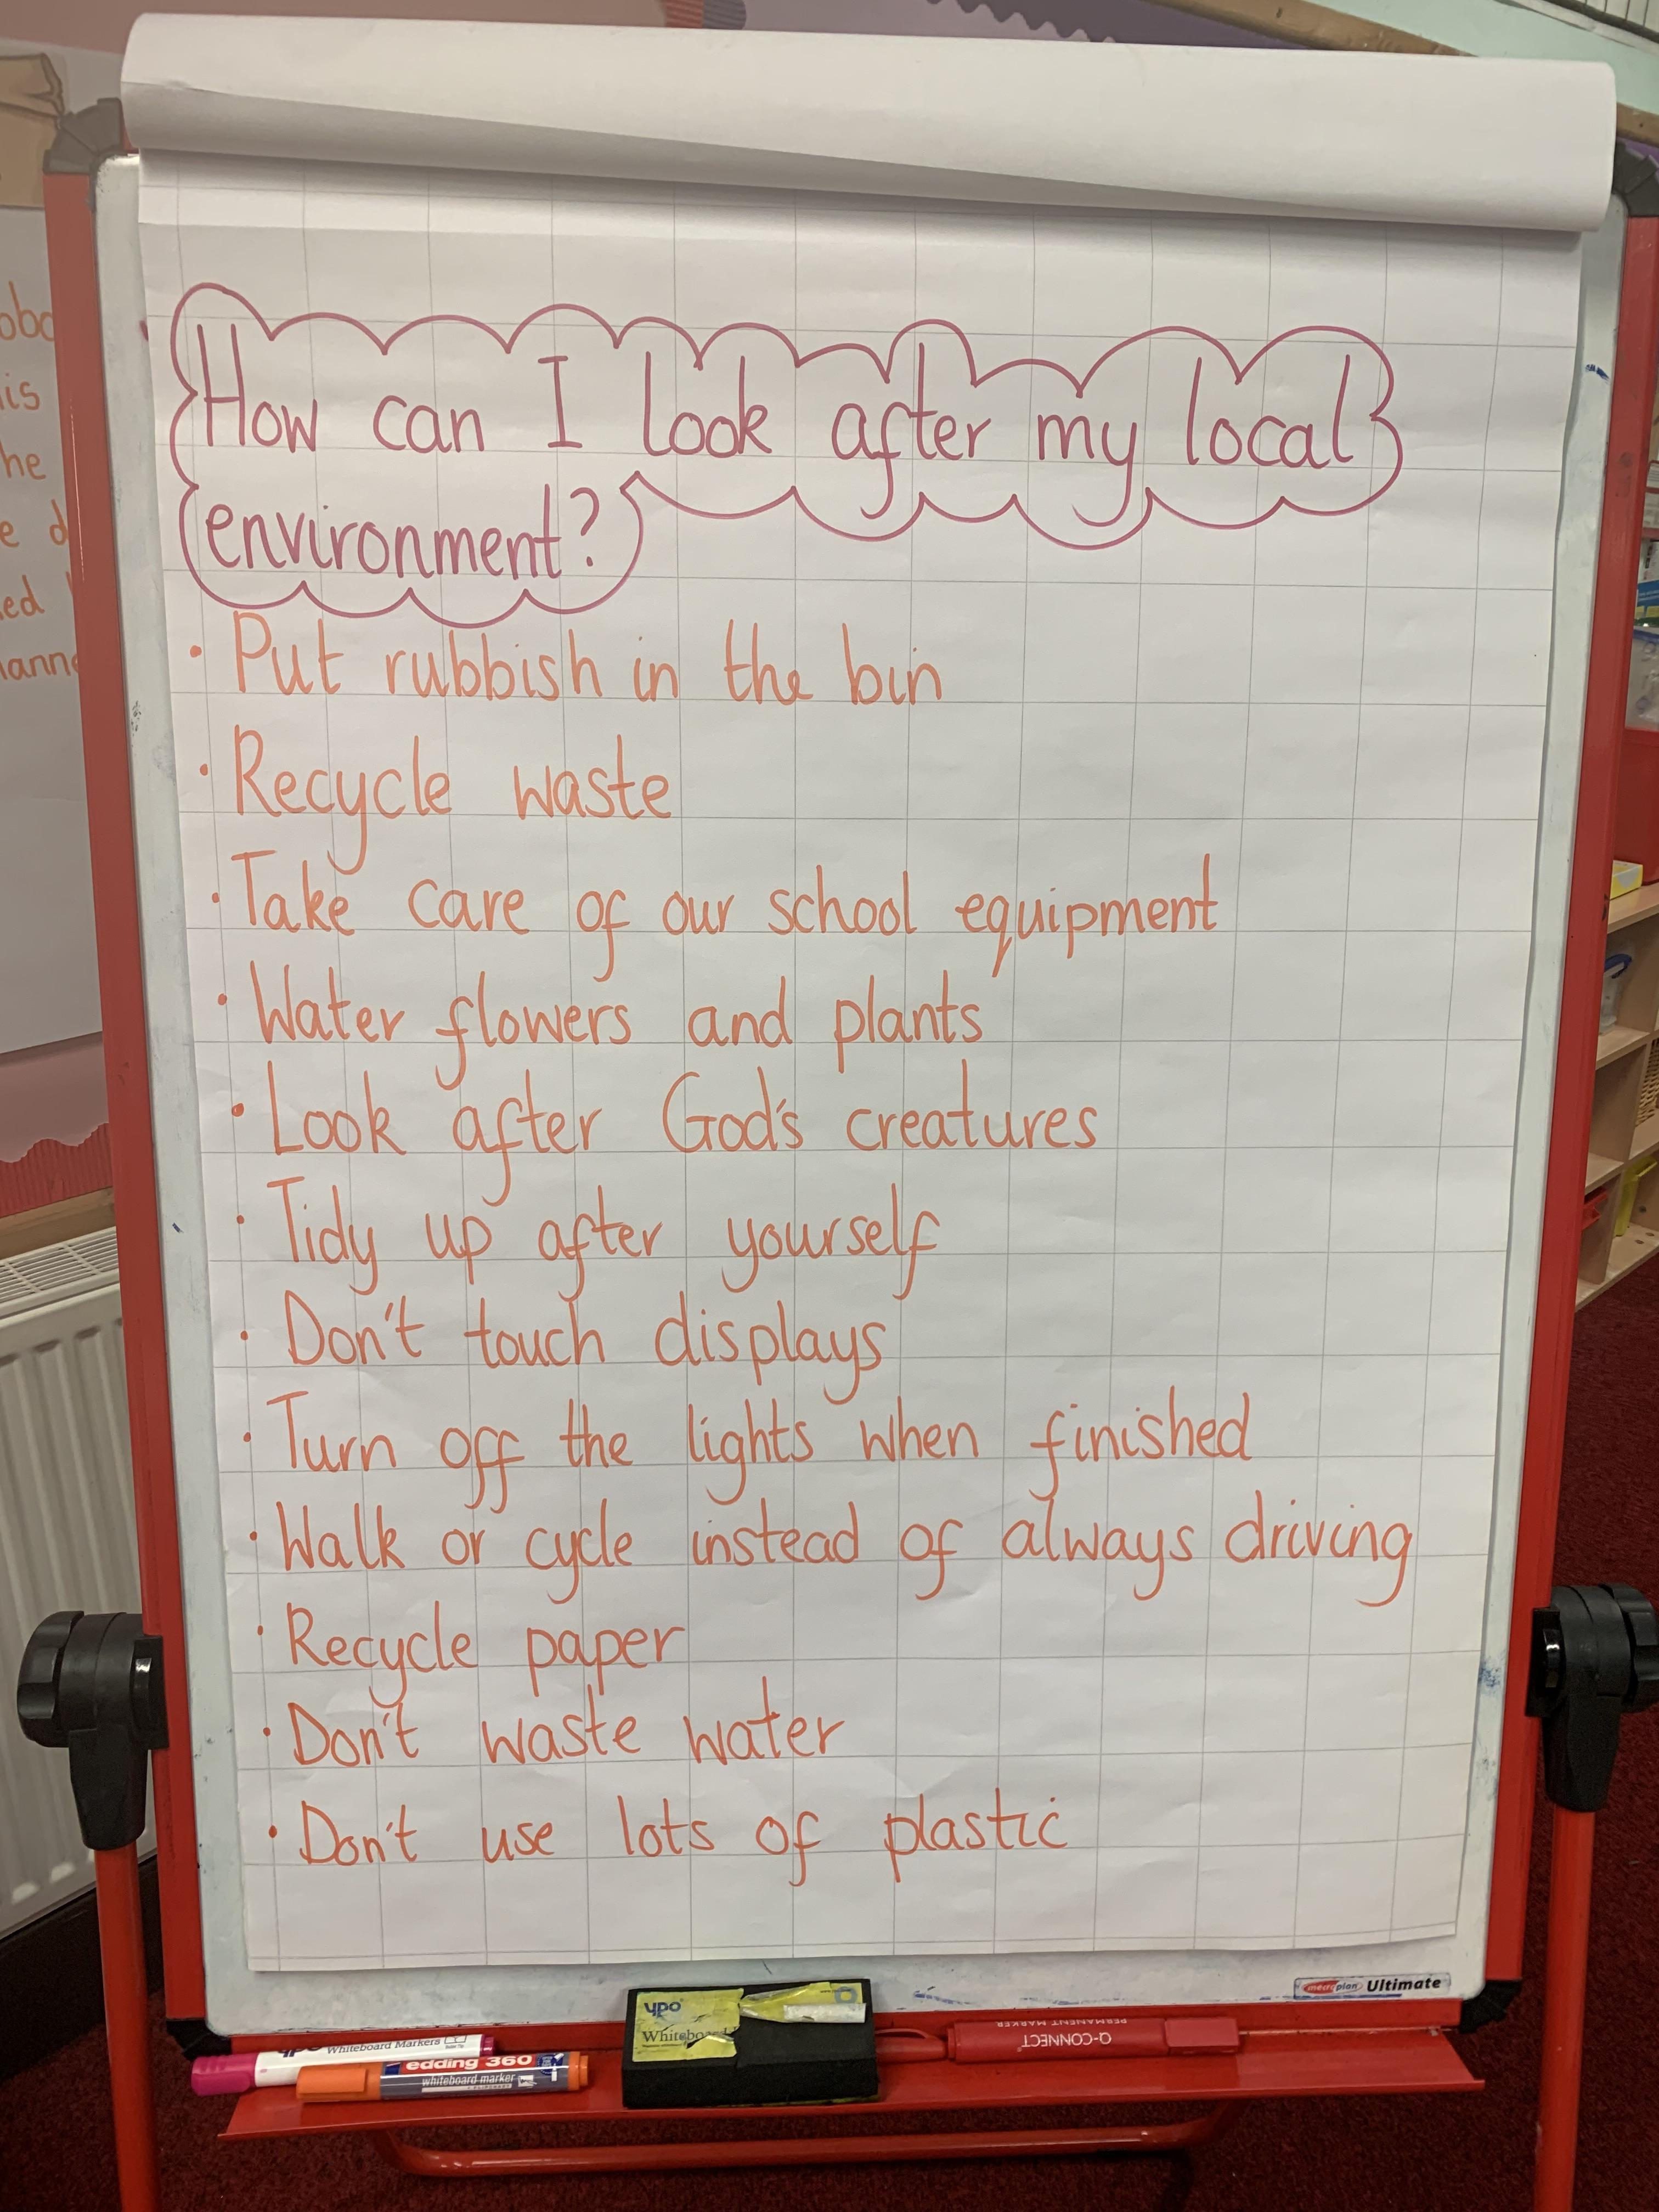 How can I look after my local
environment?
• Put rubbish in the bin
• Recycle waste
• Take care of our school equipment
• Water flowers and plants
• Look after God's creatures
• Tidy up after yourself
• Don't touch displays
• Turn off the lights when finished
• Walk or cycle instead of always driving
• Recycle paper
• Don't waste water
• Don't use lots of plastic
is
he
e d
ed
Ultimate
ypo
Whiteboard
Whiteboard Markers
edding 360
whiteboard marker
Q-CONNECT
PERMANENT MARKER